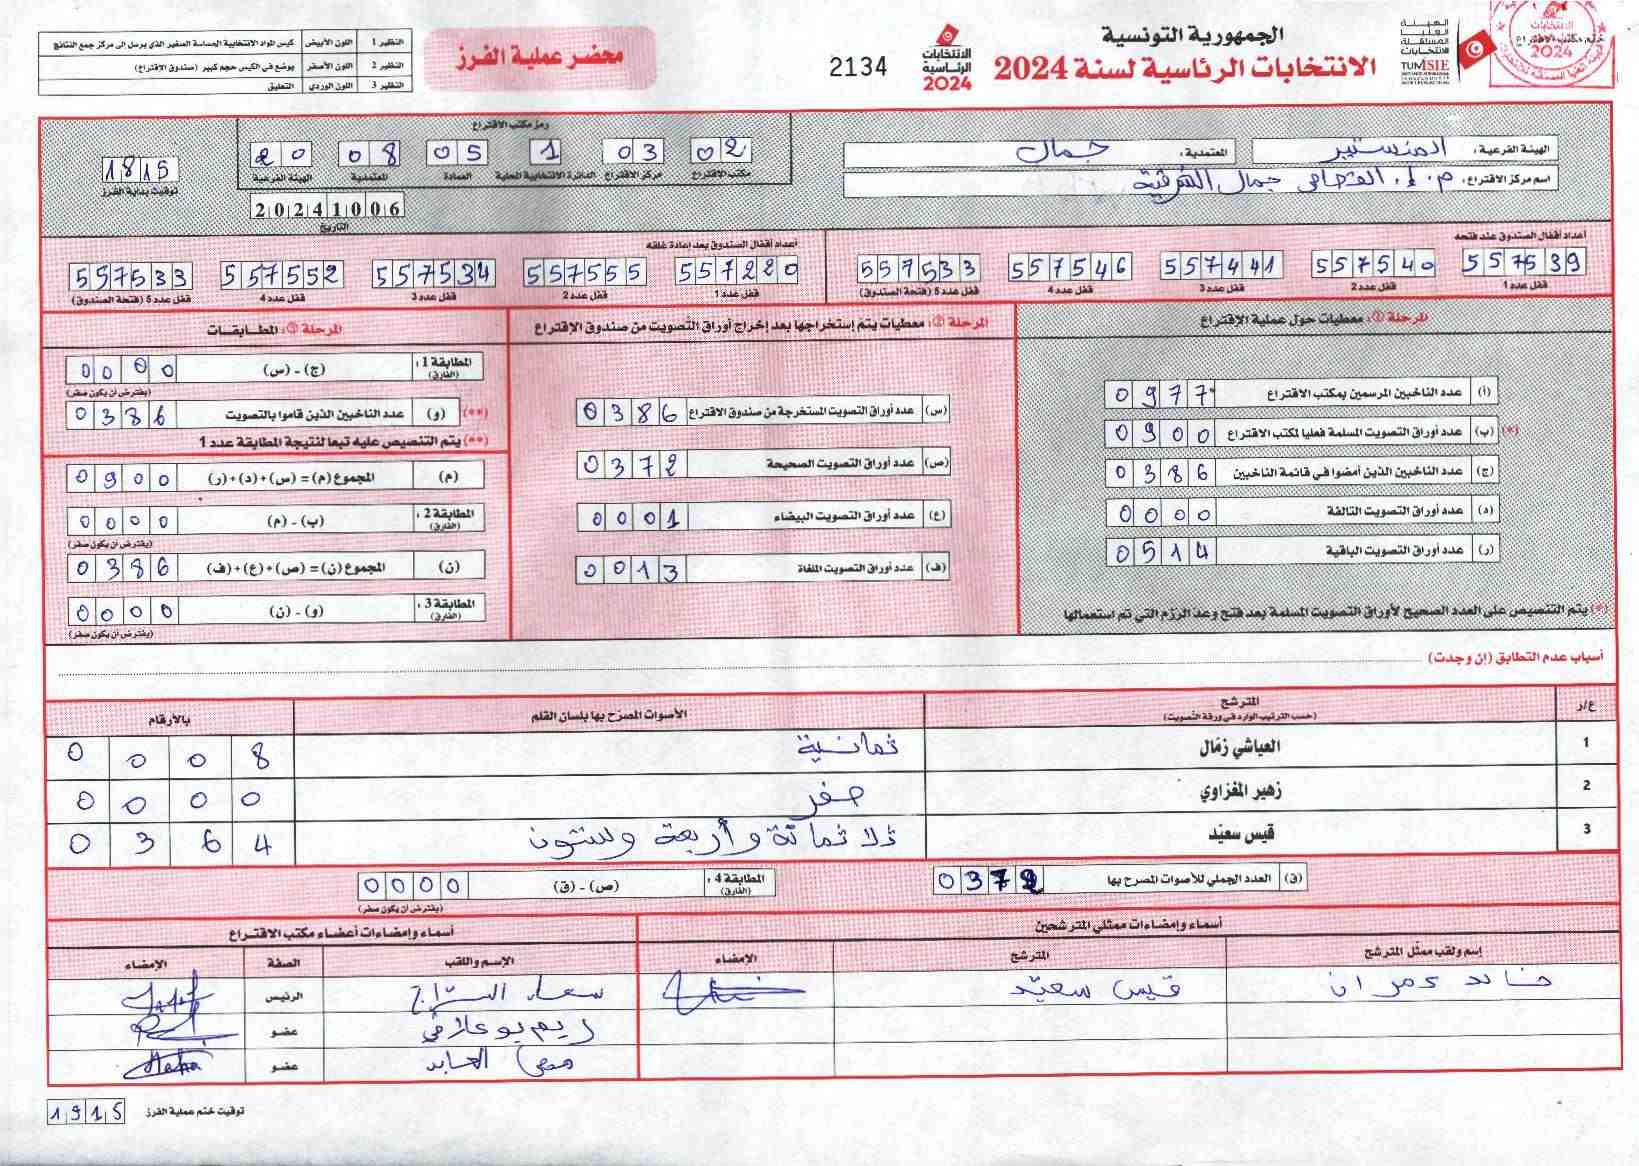 الجمهورية التونسية
الانتخابات الرئاسية لسنة 2024
الهيئة العليا المستقلة للانتخابات
TUNISIE
ختم مكتب الاقتراع
الانتخابات
2024
الانتخابات الرئاسية 2024
2134
محضر عملية الفرز
النظير 1 اللون الأبيض كيس المواد الانتخابية الحساسة الصغير الذي يرسل إلى مركز جمع النتائج
النظير 2 اللون الأصفر يوضع في الكيس حجم كبير (صندوق الاقتراع)
النظير 3 اللون الوردي التعليق
الهيئة الفرعية: المنستير المعتمدية: جمال
اسم مركز الاقتراع: م. إ. الفتحامي جمال الشرقية
رمز مكتب الاقتراع
02 03 1 05 08 20
مكتب الاقتراع مركز الاقتراع الدائرة الانتخابية المحلية العمادة المعتمدية الهيئة الفرعية
20241006
التاريخ
1815
توقيت بداية الفرز
أعداد أقفال الصندوق عند فتحه
557539 557540 557441 557546 557533
قفل عدد 1 قفل عدد 2 قفل عدد 3 قفل عدد 4 قفل عدد 5 (فتحة الصندوق)
أعداد أقفال الصندوق بعد إعادة غلقه
557220 557555 557534 557552 557533
قفل عدد 1 قفل عدد 2 قفل عدد 3 قفل عدد 4 قفل عدد 5 (فتحة الصندوق)
المرحلة ①: معطيات حول عملية الاقتراع
(أ) عدد الناخبين المرسمين بمكتب الاقتراع 0977
(*) (ب) عدد أوراق التصويت المسلمة فعليا لمكتب الاقتراع 0900
(ج) عدد الناخبين الذين أمضوا في قائمة الناخبين 0386
(د) عدد أوراق التصويت التالفة 0000
(ر) عدد أوراق التصويت الباقية 0514
(*) يتم التنصيص على العدد الصحيح لأوراق التصويت المسلمة بعد فتح وعد الرزم التي تم استعمالها
المرحلة ②: معطيات يتم إستخراجها بعد إخراج أوراق التصويت من صندوق الإقتراع
(س) عدد أوراق التصويت المستخرجة من صندوق الاقتراع 0386
(ص) عدد أوراق التصويت الصحيحة 0372
(ع) عدد أوراق التصويت البيضاء 0001
(ف) عدد أوراق التصويت الملغاة 0013
المرحلة ③: المطابقات
المطابقة 1: (الفارق) (ج) - (س) 0000
(يفترض ان يكون صفر)
(**) (و) عدد الناخبين الذين قاموا بالتصويت 0386
(**) يتم التنصيص عليه تبعا لنتيجة المطابقة عدد 1
(م) المجموع (م) = (س)+(د)+(ر) 0900
المطابقة 2: (الفارق) (ب) - (م) 0000
(يفترض ان يكون صفر)
(ن) المجموع (ن) = (ص)+(ع)+(ف) 0386
المطابقة 3: (الفارق) (و) - (ن) 0000
(يفترض ان يكون صفر)
أسباب عدم التطابق (إن وجدت)
ع/ر المترشح (حسب الترتيب الوارد في ورقة التصويت) الأصوات المصرح بها بلسان القلم بالأرقام
1 العياشي زمّال ثمانية 0008
2 زهير المغزاوي صفر 0000
3 قيس سعيّد ثلاثمائة وأربعة وستون 0364
(ق) العدد الجملي للأصوات المصرح بها 0372
المطابقة 4: (الفارق) (ص) - (ق) 0000
(يفترض ان يكون صفر)
أسماء وإمضاءات ممثلي المترشحين
إسم ولقب ممثل المترشح المترشح الإمضاء
خالد عمران قيس سعيّد
أسماء وإمضاءات أعضاء مكتب الاقتراع
الإسم واللقب الصفة الإمضاء
سعاد السرّاج الرئيس
ريم بوعلاقي عضو
مهى العابد عضو
توقيت ختم عملية الفرز 1915